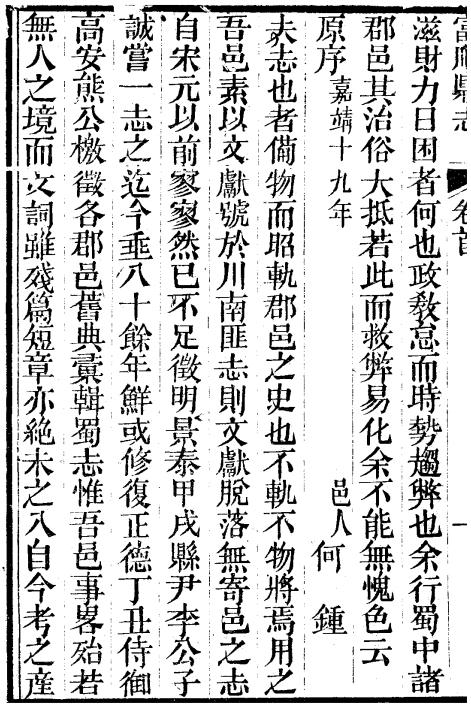 富順縣志　卷首　一
滋財力日困者何也政敎怠而時勢趨弊也余行蜀中諸
郡邑其治俗大抵若此而救弊易化余不能無愧色云
原序嘉靖十九年　邑人何　鍾
夫志也者備物而昭軌郡邑之史也不軌不物將焉用之
吾邑素以文獻號於川南匪志則文獻脫落無寄邑之志
自宋元以前寥寥然已不足徵明景泰甲戌縣尹李公子
誠嘗一志之迄今垂八十餘年鮮或修復正德丁丑侍御
高安熊公檄徵各郡邑舊典彙輯蜀志惟吾邑事畧殆若
無人之境而文詞雖殘篇短章亦絶未之入自今考之產